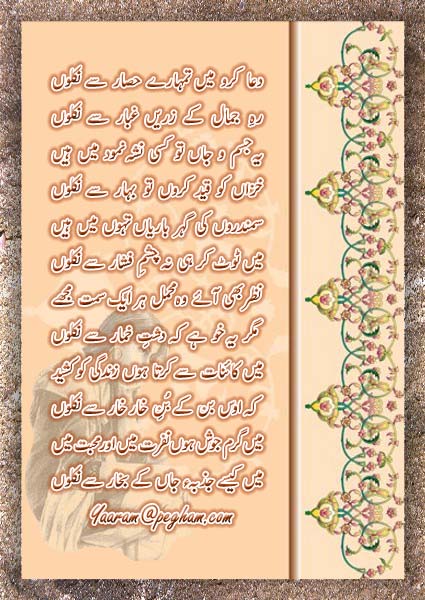 دعا کرو میں تمہارے حصار سے نکلوں
رہِ جمال کے زریں غبار سے نکلوں
یہ جسم و جاں تو کسی نشۂ نمود میں ہیں
خزاں کو قید کروں تو بہار سے نکلوں
سمندروں کی گہر باریاں تہوں میں ہیں
میں ٹوٹ کر ہی نہ چشمِ فشار سے نکلوں
نظر بھی آئے وہ محمل ہر ایک سمت مجھے
مگر یہ خو ہے کہ دشتِ خمار سے نکلوں
میں کائنات سے کرتا ہوں زندگی کو کشید
کہ اوس بن کے بُنِ خار خار سے نکلوں
میں گرم جوش ہوں نفرت میں اور محبت میں
میں کیسے جذبہء جاں کے بخار سے نکلوں
Yaaram@pegham.com